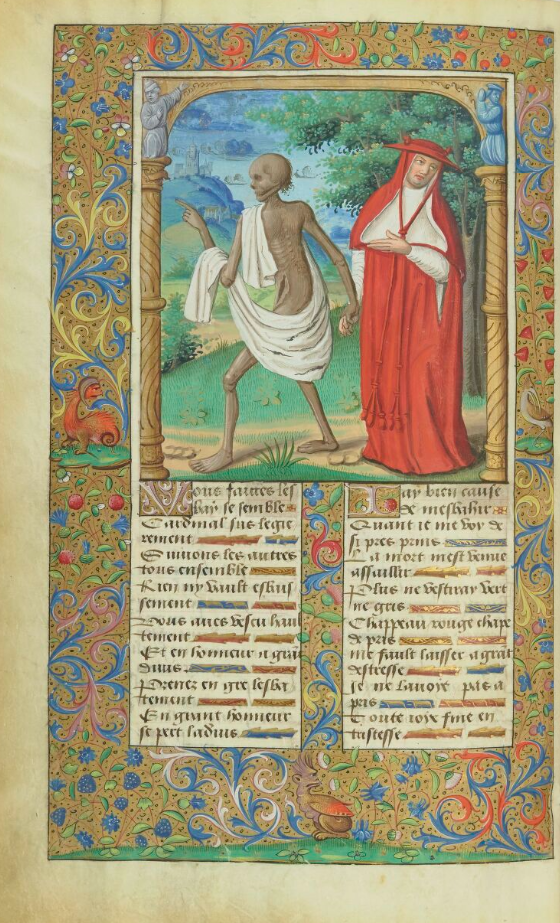 Vous faictes les
bay se semble
Cardinal sus legie
rement
Suivons les autres
tous ensemble
Rien ny vault esbais
sement
Vous aves vescu haul
tement
Et en honneur a grant
divis
Prenez en gre lesba
tement
En grant honneur
se pert ladvis
Jay bien cause
de mesbahir
Quant ie me voy de
si pres prins
La mort mest venue
assaillir
Plus ne vestiray vert
ne gris
Chappeau rouge chape
de pris
me fault laisser a grant
destresse
Je ne lavoye pas a
pris
Toute ioye fine en
tristesse